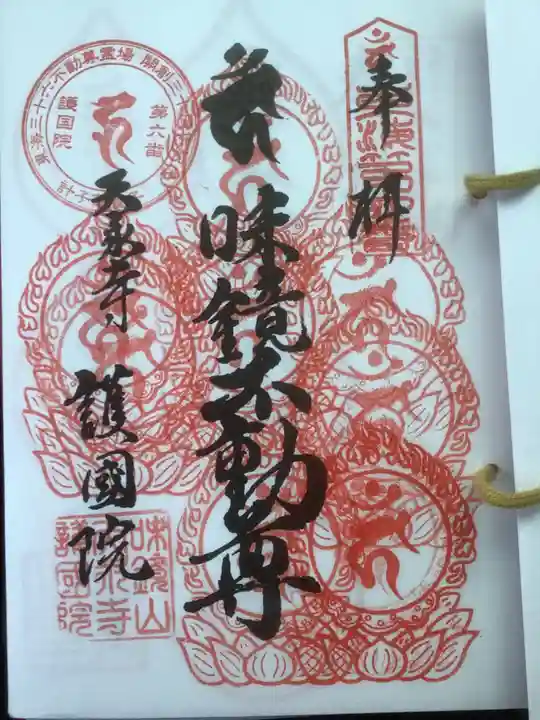 奉拝
味鏡不動尊
天永寺
護國院
東海三十六不動尊霊場
開創三十
第六番
護国院
味鏡山
天永寺
護国院